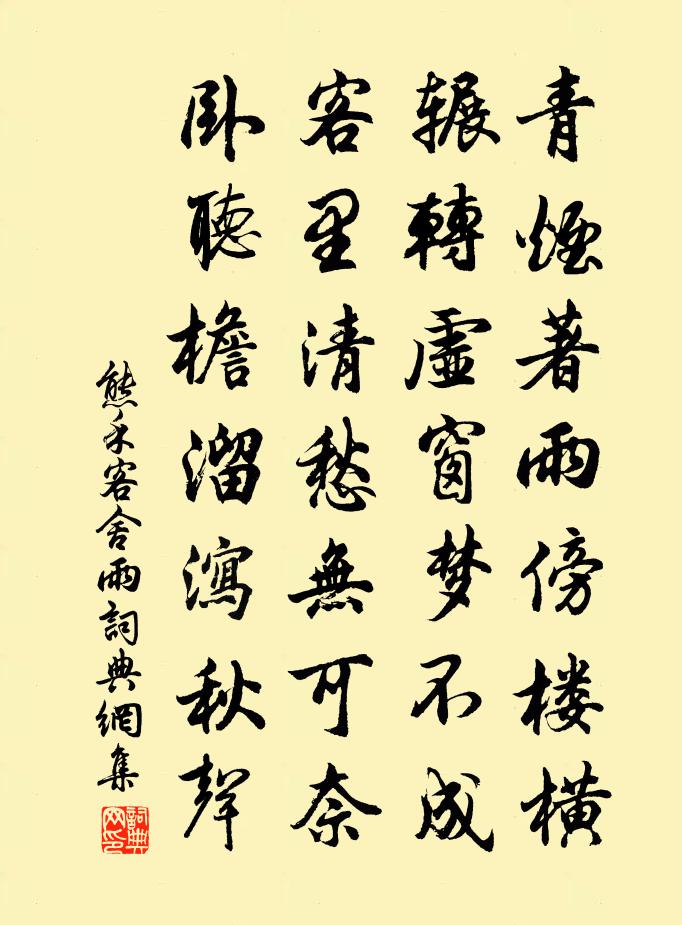 青煙著雨傍楼橫
輾轉虛窗梦不成
客里清愁無可奈
卧聽檐溜瀉秋聲
熊禾客舍雨詞典網集
詞典网印